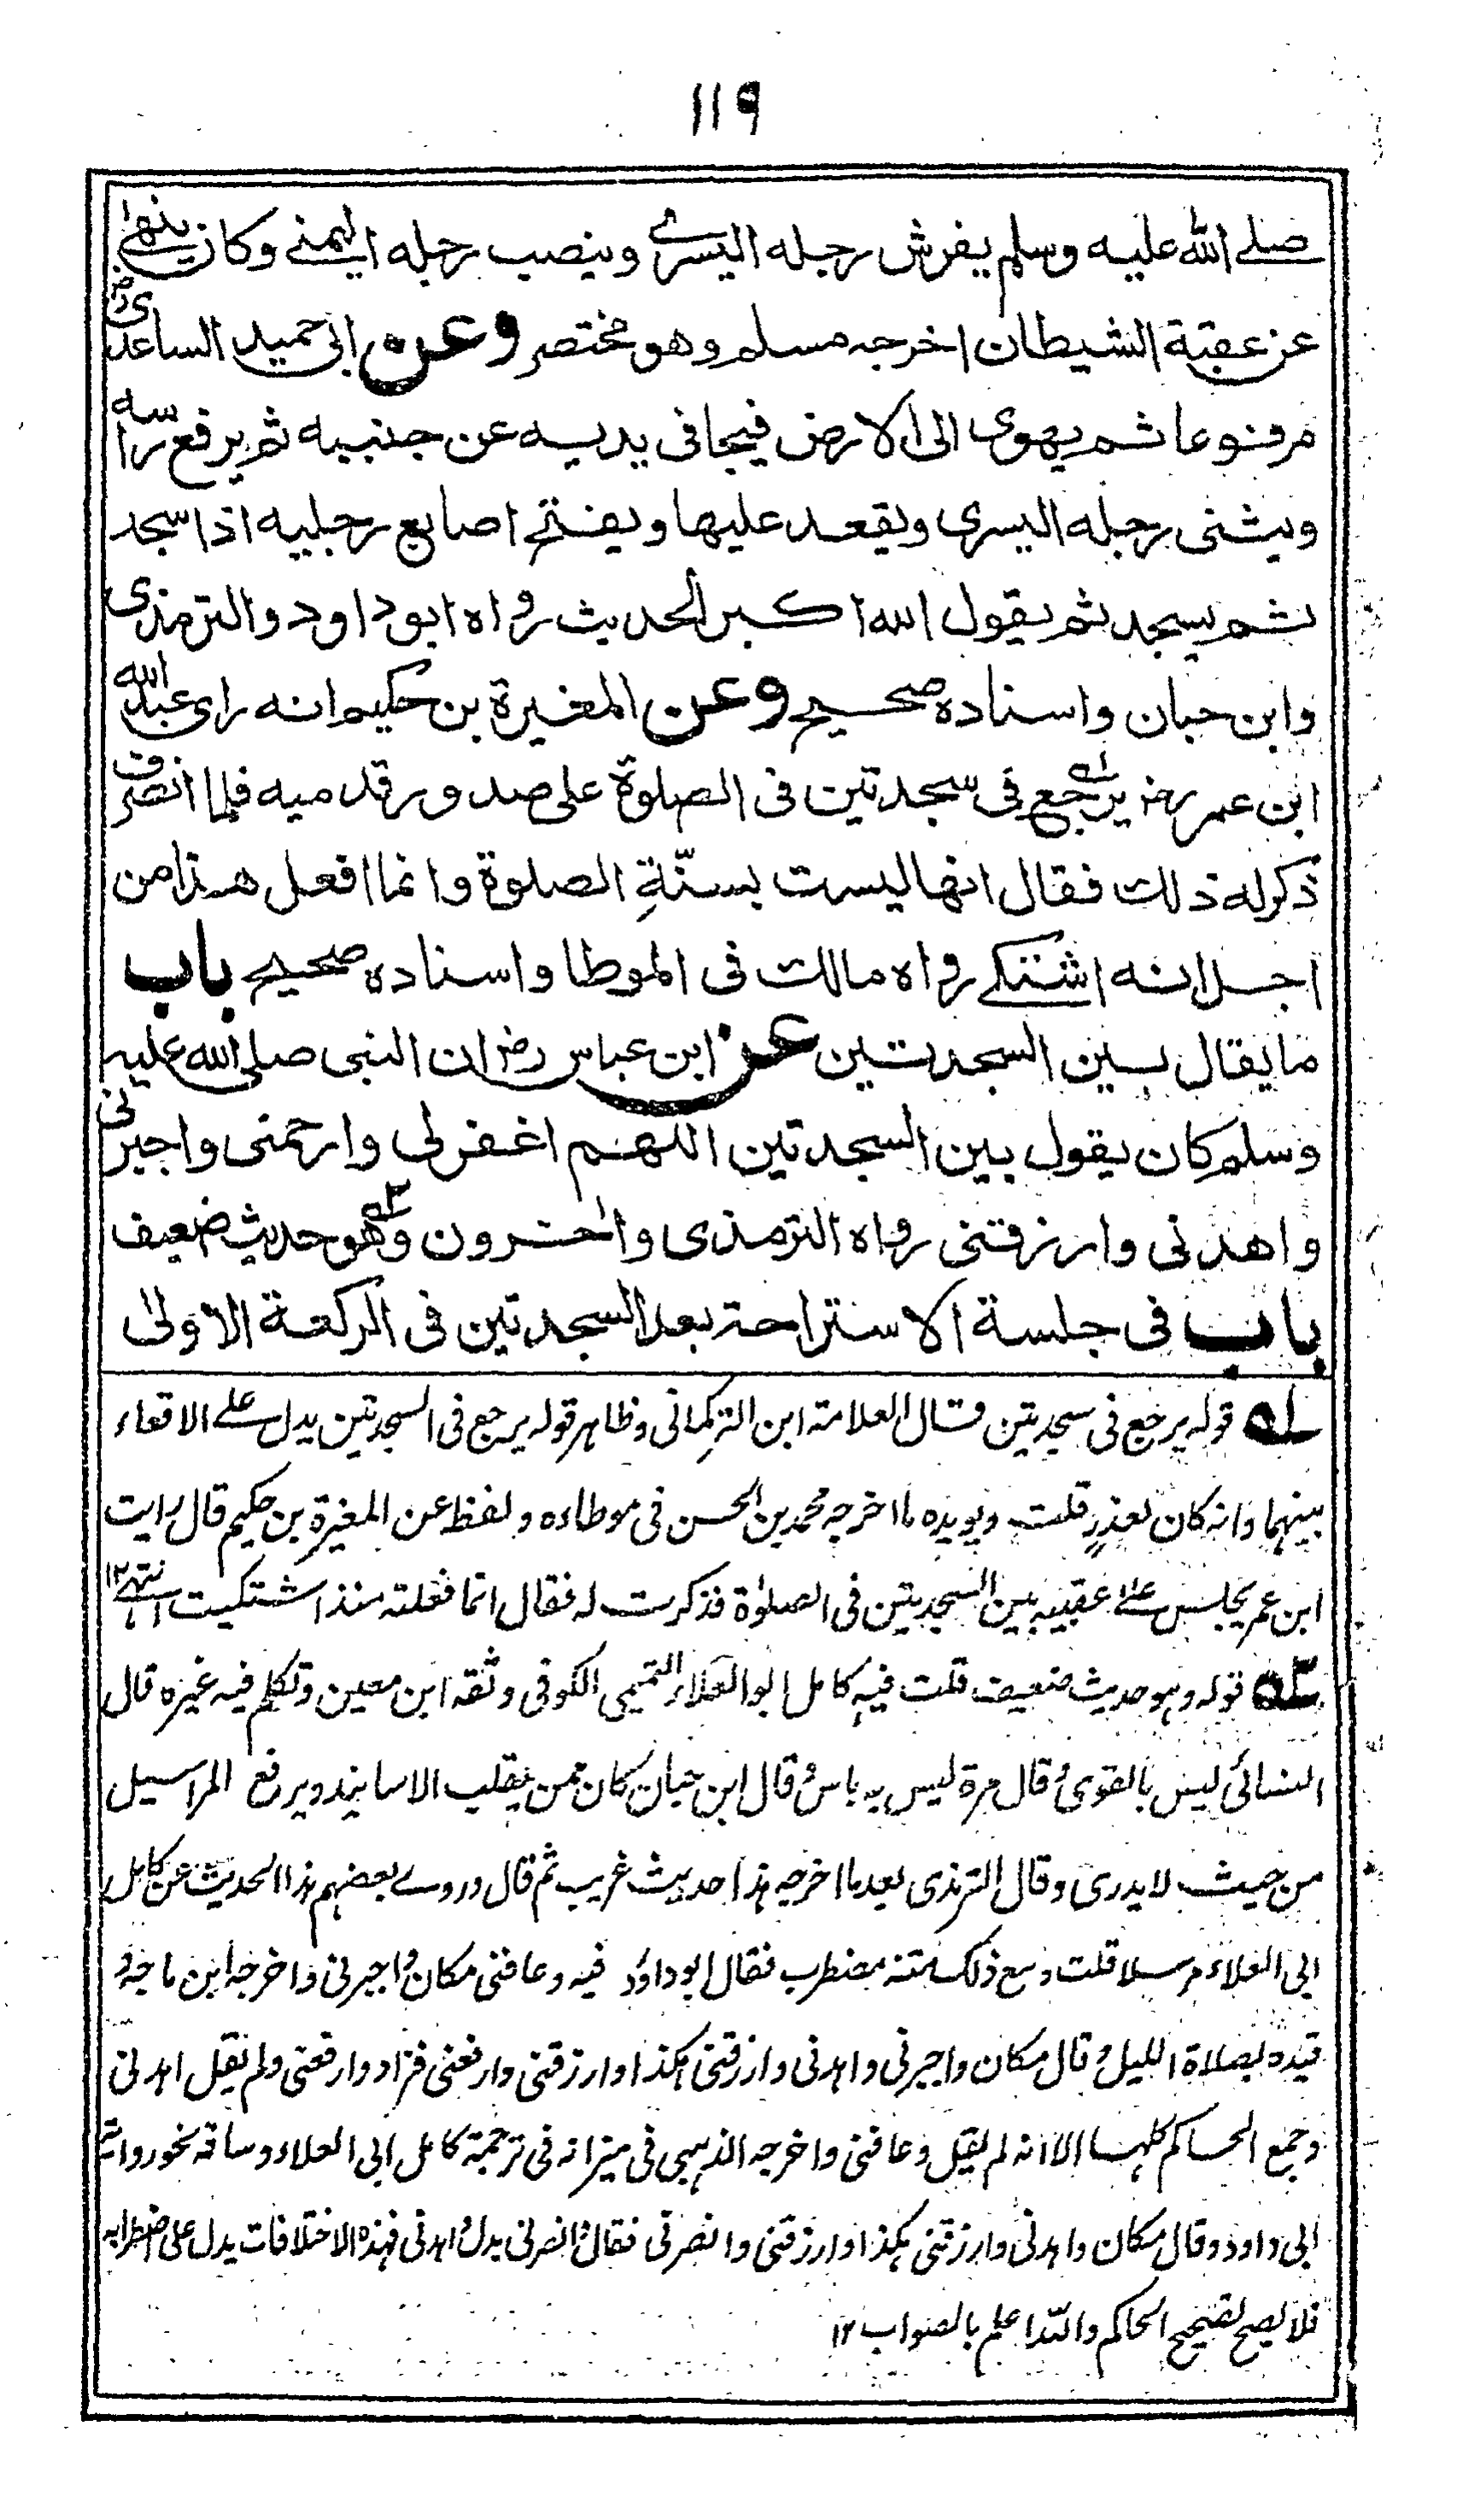 ١١٩
صلے الله عليه وسلم يفرش رجله اليسرے وينصب رجله اليمنے وكان ينهے
عن عقبة الشيطان اخرجه مسلم وهو مختصر وعن ابى حميد الساعدى رض
مرفوعا ثم يهوى الى الارض فيجافى يديه عن جنبيه ثم يرفع راسه
ويثنى رجله اليسرى ويقعد عليها ويفتح اصابع رجليه اذا سجد
ثم يسجد ثم يقول الله اكبر الحديث رواه ابوداود والترمذى
وابن حبان واسناده صحيح وعن المغيرة بن حكيم انه راى عبد الله
ابن عمر رض يرجع ١ـه فى سجدتين فى الصلوة على صدور قدميه فلما انصرف
ذكر له ذلك فقال انها ليست بسنّةِ الصلوة وانما افعل هذا من
اجل انه اشتكے رواه مالك فى الموطا واسناده صحيح باب
ما يقال بين السجدتين عن ابن عباس رض ان النبى صلى الله عليه
وسلم كان يقول بين السجدتين اللهم اغفر لى وارحمنى واجبرنى
واهدنى وارزقنى رواه الترمذى واٰخرون ٢ـه وهو حديث ضعيف
باب فى جلسة الاستراحة بعد السجدتين فى الركعة الاولىٰ
١ـه قوله يرجع فى سجدتين قال العلامة ابن التركمانى وظاهر قوله يرجع فى السجدتين يدل علے الاقعاء
بينهما وانه كان لعذرٍ قلت ويويده ما اخرجه محمد بن الحسن فى موطاءه ولفظ عن المغيرة بن حكيم قال رايت
ابن عمر يجلس علے عقبيه بين السجدتين فى الصلوٰة فذكرت له فقال انما فعلته منذ اشتكيت انتهے ١٢
٢ـه قوله وهو حديث ضعيف قلت فيه كامل ابو العلاء التميمى الكوفى وثقه ابن معين وتكلم فيه غيره قال
النسائى ليس بالقوى وقال مرة ليس به باس وقال ابن حبان كان ممن يقلب الاسانيد ويرفع المراسيل
من حيث لا يدرى وقال الترمذى بعد ما اخرجه هذا حديث غريب ثم قال وروے بعضهم هذا الحديث عن كامل
ابى العلاء مرسلا قلت ومع ذلك متنه مضطرب فقال ابوداؤد فيه وعافنى مكان واجبرنى واخرجه ابن ماجه و
قيده بصلاة الليل وقال مكان واجبرنى واهدنى وارزقنى هكذا وارزقنى وارفعنى فزاد وارفعنى ولم يقل اهدنى
وجمع الحاكم كلها الا انه لم يقل وعافنى واخرجه الذهبى فى ميزانه فى ترجمة كامل ابى العلاء وساقه نحو رواية
ابى داود وقال مكان واهدنى وارزقنى هكذا وارزقنى وانصرنى فقال وانصرنى بدل واهدنى فهذه الاختلافات يدل على اضطرابه
فلا يصح تصحيح الحاكم والله اعلم بالصواب ١٢